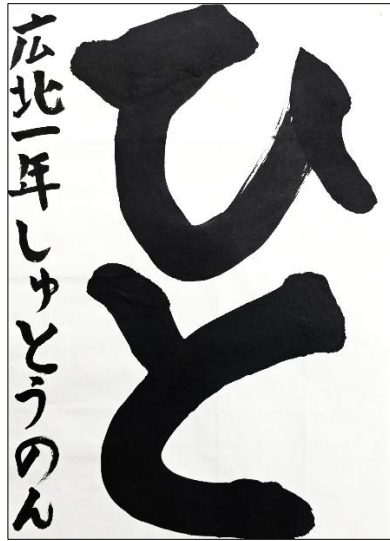 ひと
広北一年しゅとうのん